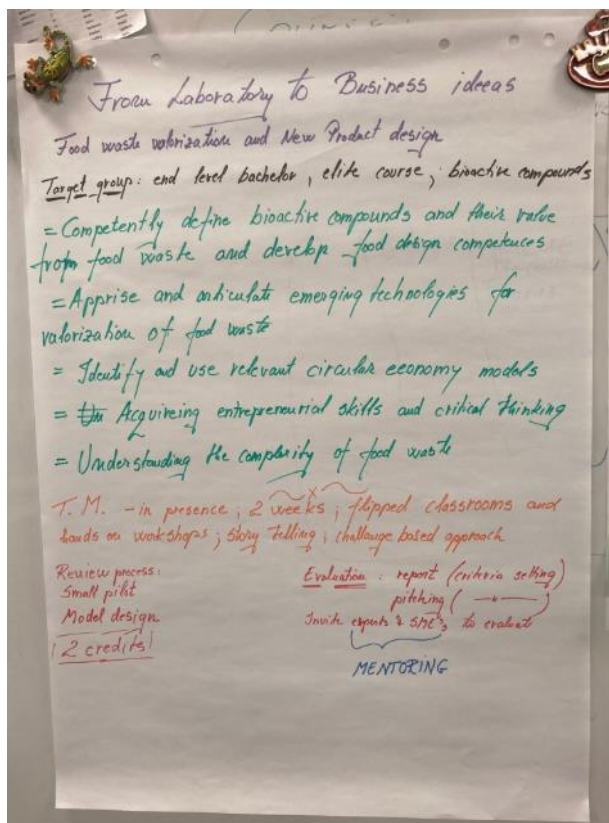 From Laboratory to Business ideeas
Food waste valorization and New Product design
Target group: end level bachelor, elite course; bioactive compounds
= Competently define bioactive compounds and their value
from food waste and develop food design competences
= Apprise and articulate emerging technologies for
valorization of food waste
= Identify and use relevant circular economy models
= Acquireing entrepreneurial skills and critical thinking
= Understanding the complexity of food waste
T.M. - in presence; 2 weeks; flipped classrooms and
hands on workshops; story telling; challange based approach
Review process:
Small pilot
Model design
2 credits
Evaluation: report (criteria setting)
pitching ( —"— )
Invite experts & SME's to evaluate
MENTORING